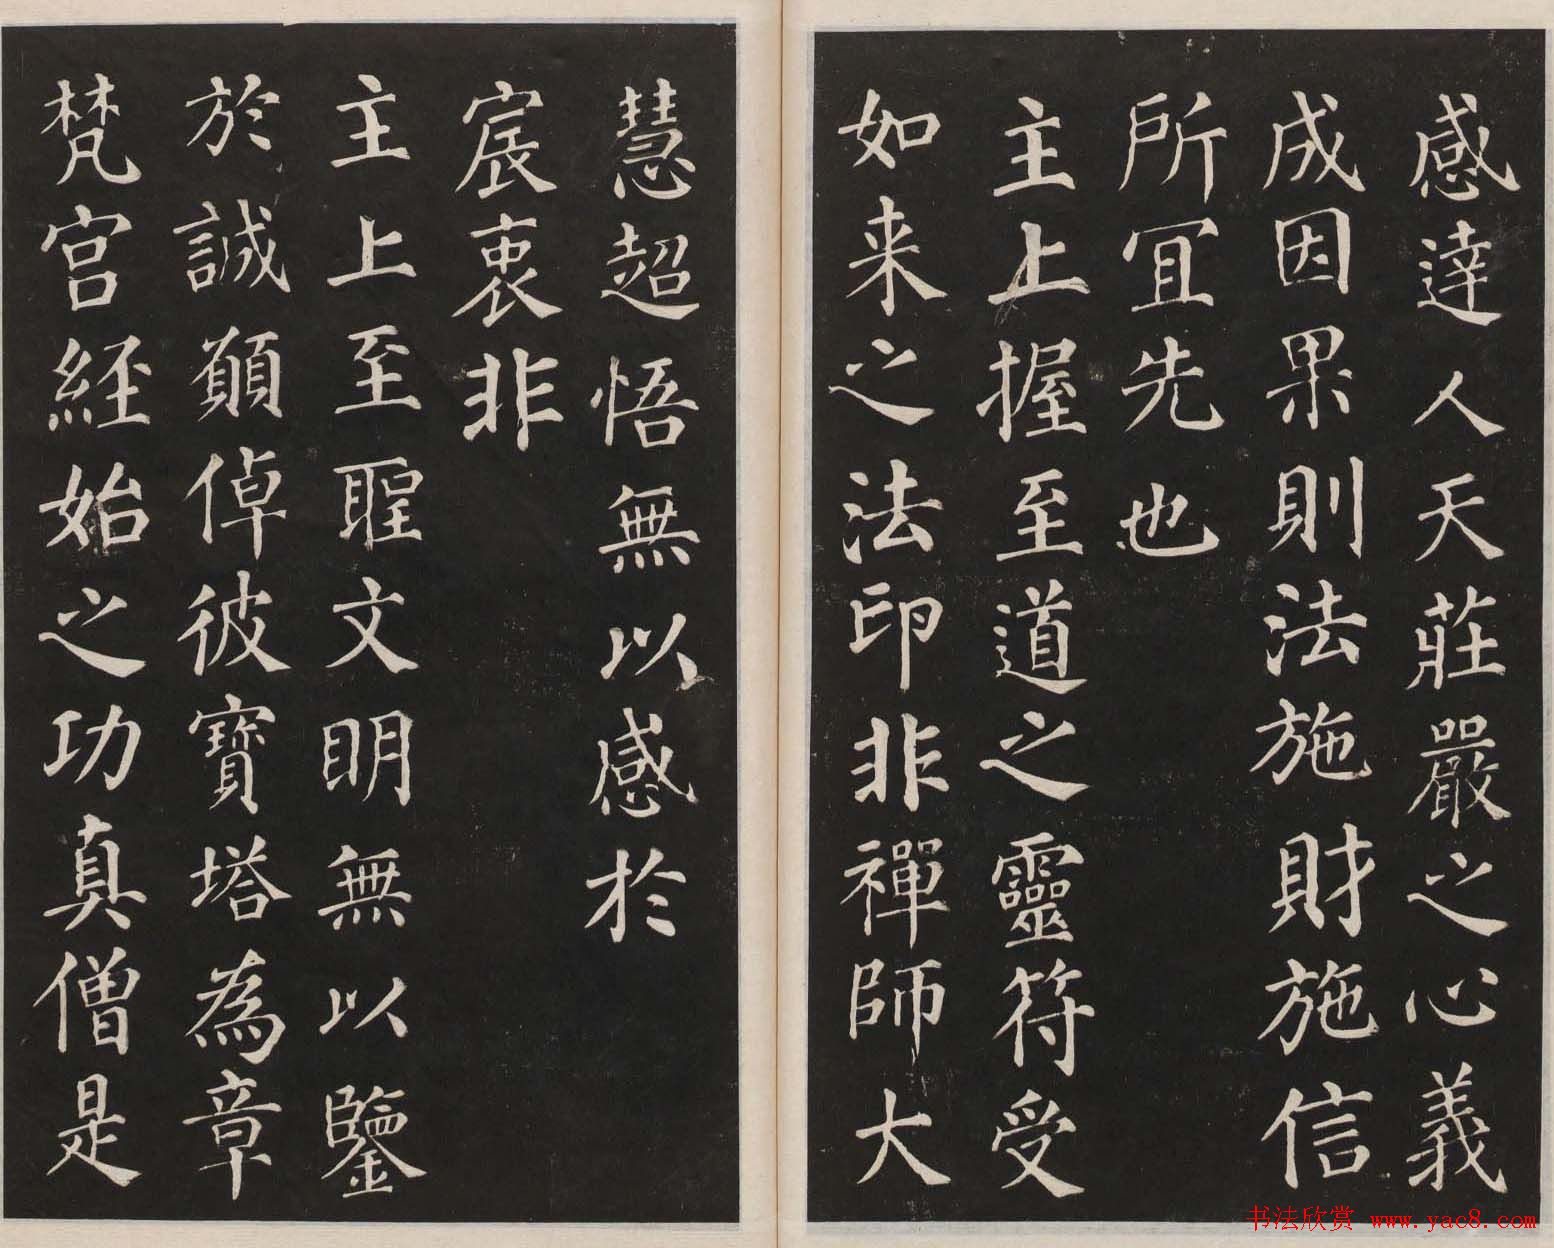 感達人天莊嚴之心義
成因果則法施財施信
所冝先也
主上握至道之靈符受
如来之法印非禪師大
慧超悟無以感於
宸衷非
主上至聖文明無以鑒
於誠願倬彼寶塔為章
梵宫経始之功真僧是
书法欣赏 www.yac8.com